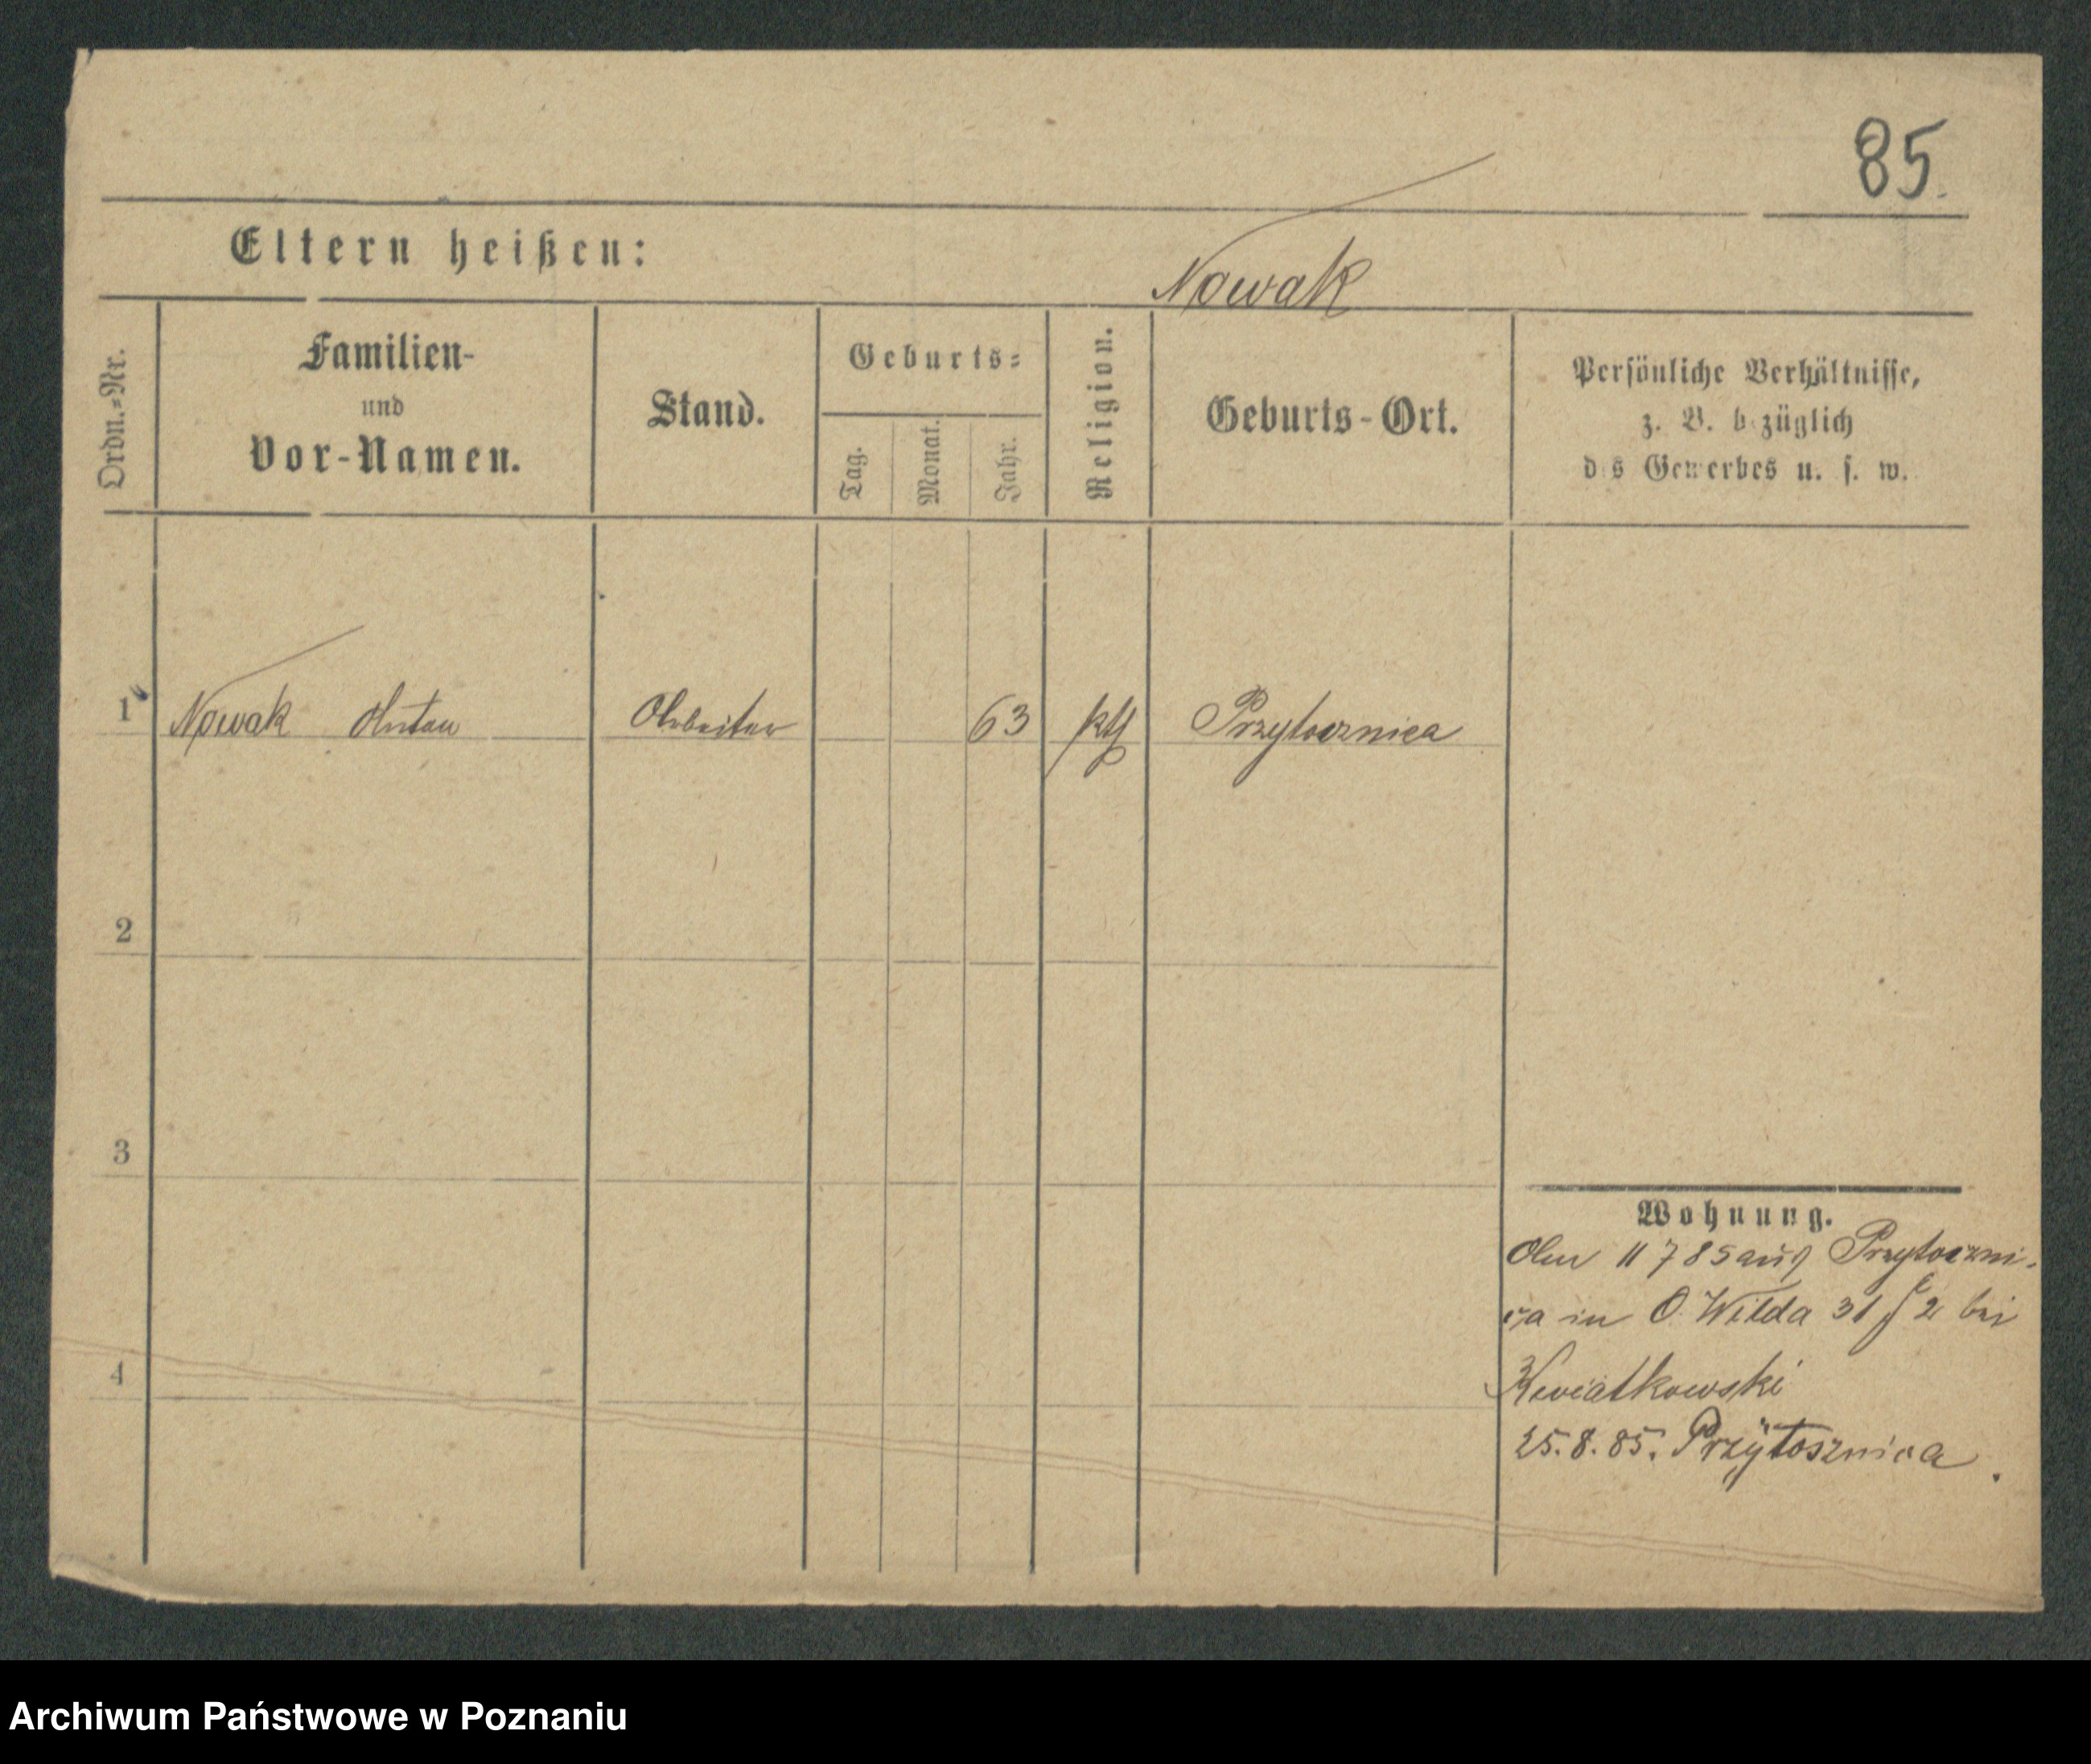 85.
Eltern heißen:
Nowak
Ordn.-Nr.
Familien-
und
Vor-Namen.
Stand.
Geburts-
Tag.
Monat.
Jahr.
Religion.
Geburts-Ort.
Persönliche Verhältnisse,
z. B. bezüglich
des Gewerbes u. s. w.
1 Nowak Anton Arbeiter 63 kth Przytocznica
2
3
4
Wohnung.
Am 11 7 85 aus Przytoczni-
ca in O. Wilda 31 2 bei
Kwiatkowski
25. 8. 85. Przÿtosznica.
Archiwum Państwowe w Poznaniu